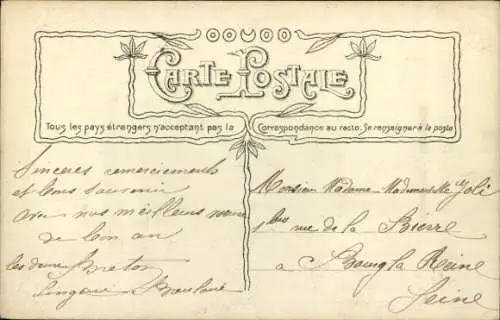 CARTE POSTALE
Tous les pays étrangers n'acceptant pas la Correspondance au recto. Se renseigner à la poste
Sincères remerciements
et bons souvenirs
avec nos meilleurs vœux
de bon an
les deux Breton
Monsieur Madame Mademoiselle Joli
1 bis rue de la Bièvre
à Bourg la Reine
Seine